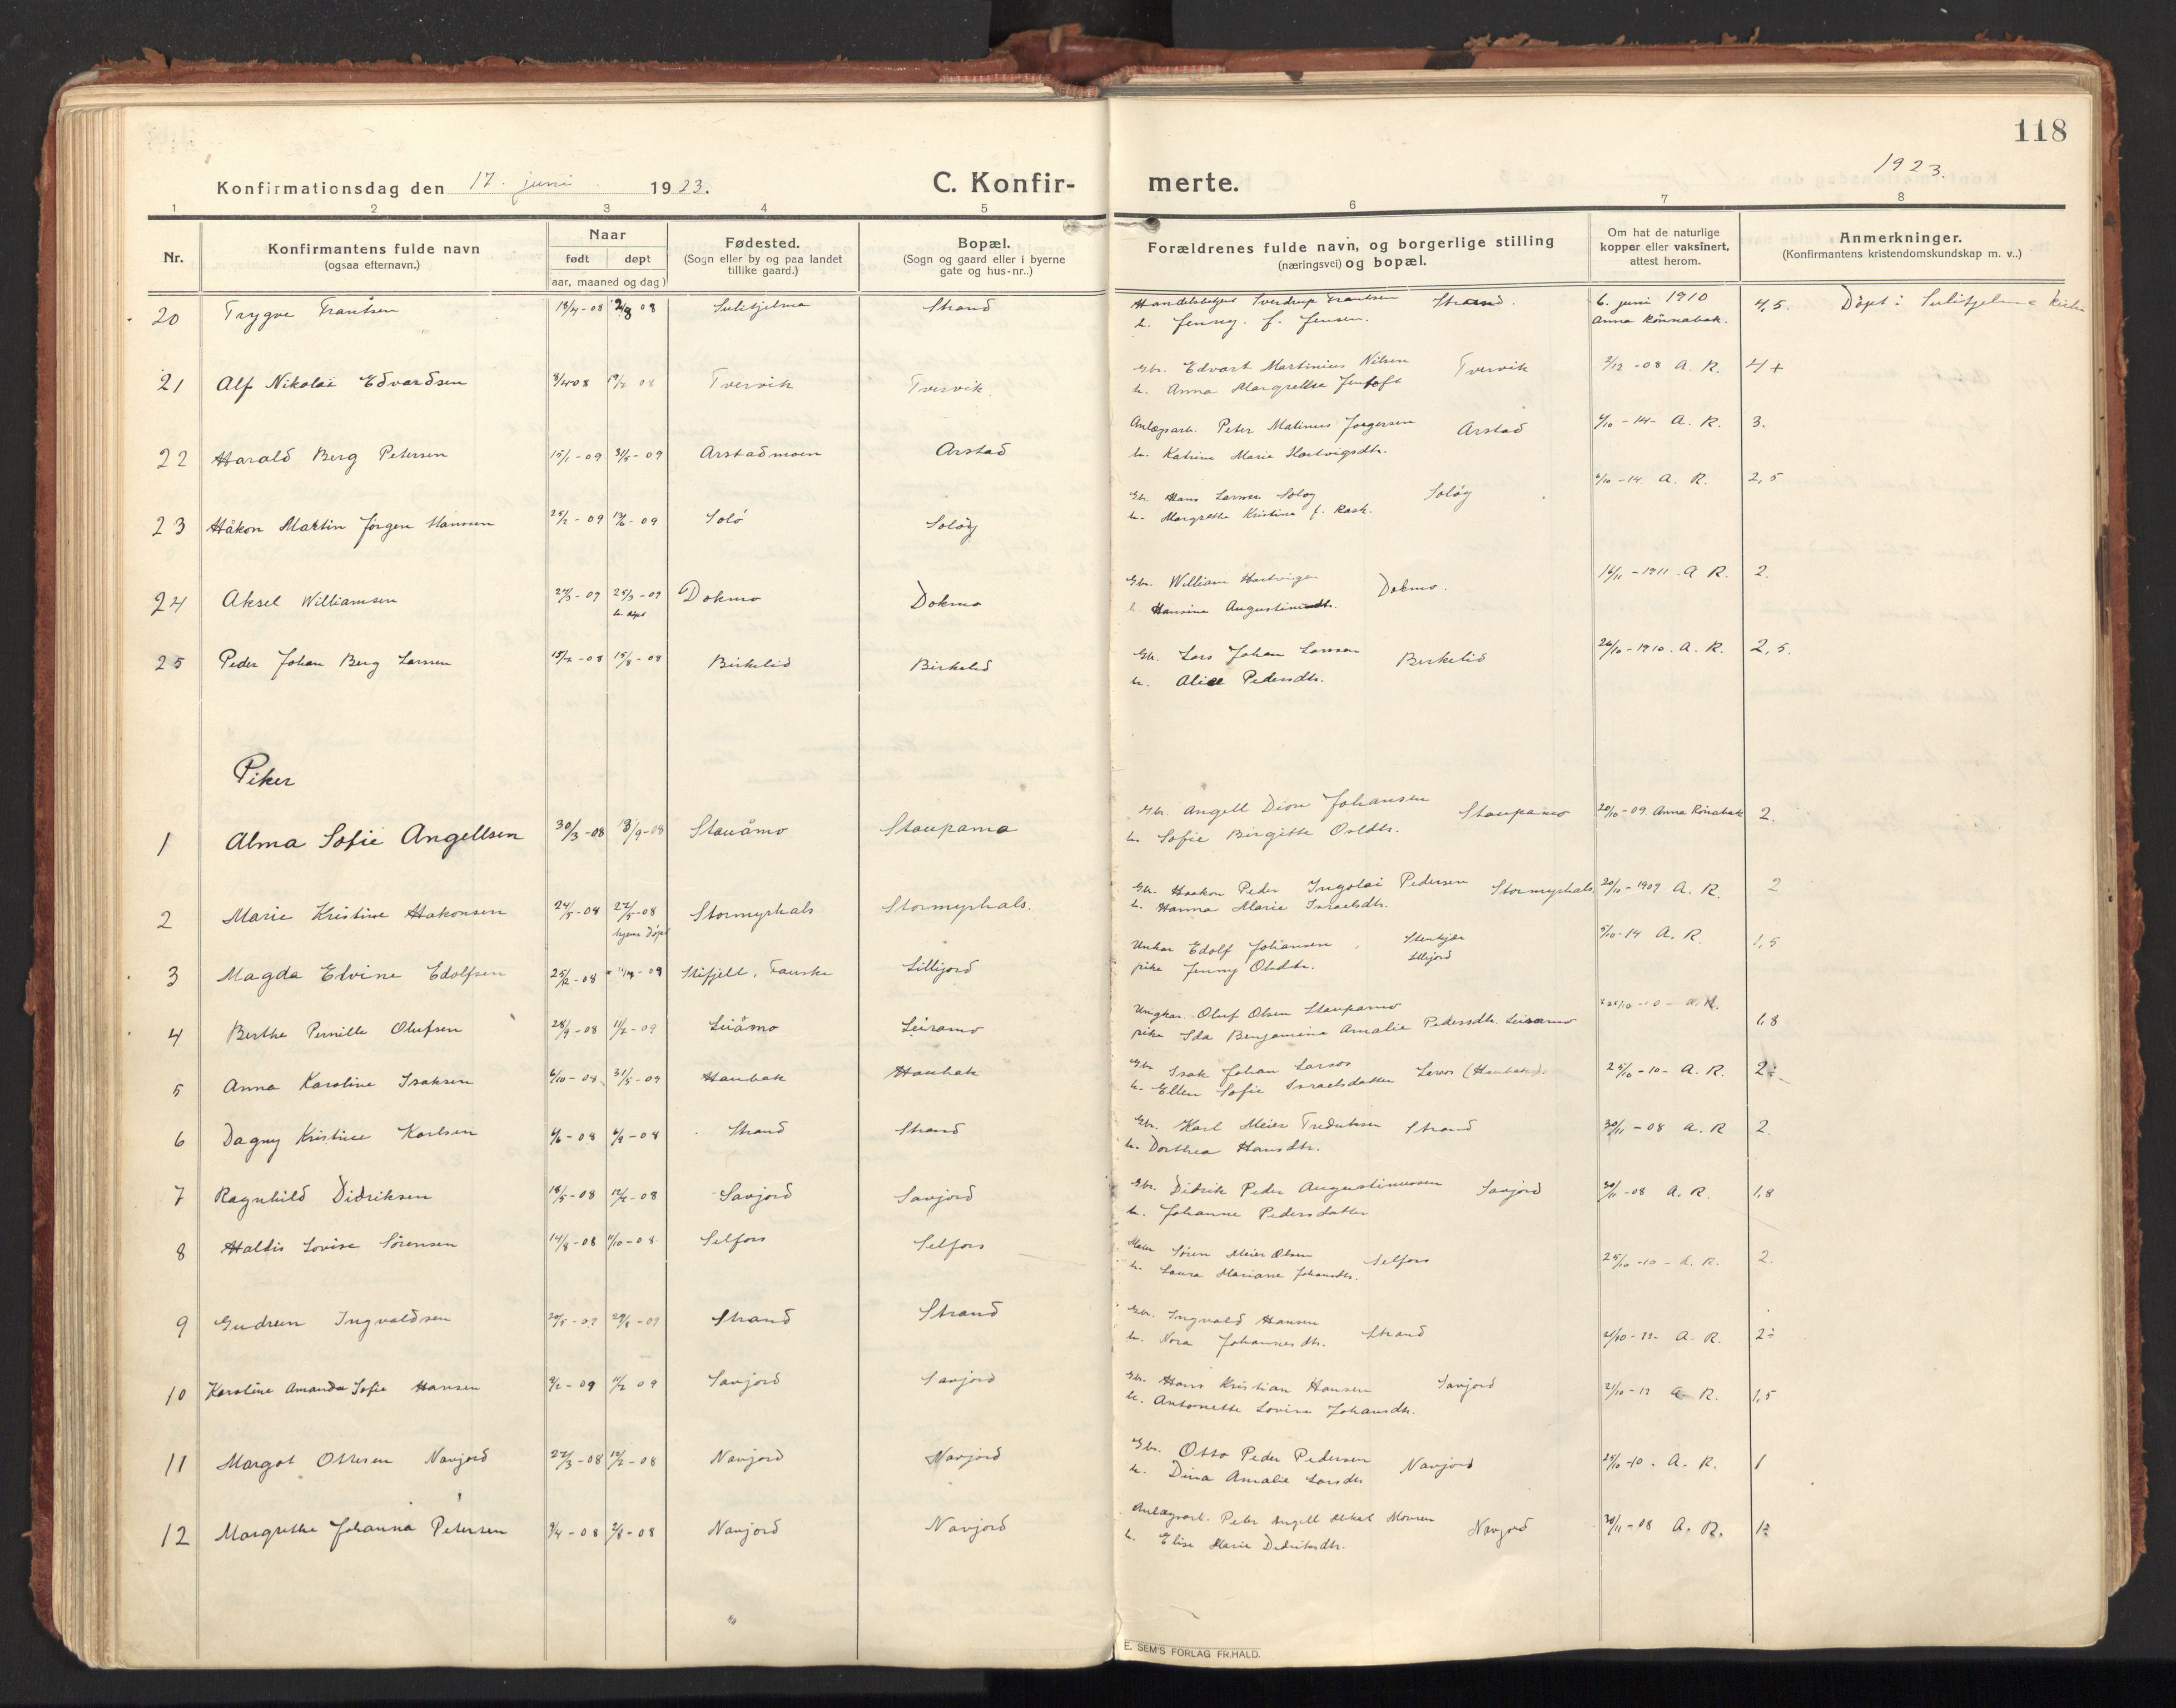 118
1923.
Konfirmationsdag den 17. juni 1923.
C. Konfir-
merte.
1 2 3 4 5 6 7 8
Nr.
Konfirmantens fulde navn
(ogsaa efternavn.)
Naar
født døpt
(aar, maaned og dag)
Fødested.
(Sogn eller by og paa landet
tillike gaard.)
Bopæl.
(Sogn og gaard eller i byerne
gate og hus-nr..)
Forældrenes fulde navn, og borgerlige stilling
(næringsvei) og bopæl.
Om hat de naturlige
kopper eller vaksinert,
attest herom.
Anmerkninger.
(Konfirmantens kristendomskundskap m. v..)
20 Trygve Frantsen 08 Sulitjelma Strand
Sverdrup Frantsen Strand.
h. Jenny f. Jensen.
6. juni 1910
Anna Rönnabak.
4,5. Döpt i Sulitjelma
21 Alf Nikolai Edvardsen 08 Tvervik Tvervik
Gbr. Edvart Martinius Nilsen Tvervik
h. Anna Margrethe
2/12 -08 A. R. 4+
22 Harald Berg Petersen 15/1 -09 31/5 -09 Arstadmoen Arstad
Anlægsarb. Peter Matinus Jörgensen Arstad
h. Katrine Marie Hartvigsdtr.
-14- A. R. 3.
23 Håkon Martin Jörgen Hansen 25/2 -09 -09 Solö Solöy
Gbr. Hans Larssen Solöy Solöy
h. Margrethe Kristine f. Rask.
-14 A. R. 2,5
24 Aksel Williamsen -09 25/3 -09 Dokmo Dokmo
Gbr. William Dokmo.
h. Hansine Augustinusdtr.
16/11 -1911. A R. 2.
25 Peder Johan Berg Larsen -08 15/8 -08 Birkelid Birkelid
Gbr. Lars Johan Larssen Birkelid
h. Alice Pedersdtr.
-1910. A. R. 2,5.
Piker
1 Alma Sofie Angellsen 30/3 -08 13/9 -08 Stauåmo Staupamo
Gbr. Angell Dion Johansen Staupamo
h. Sofie Birgitte
20/10 -09 Anna Rönabak 2.
2 Marie Kristine Hakonsen 24/5 -08 27/5 -08 Stormyrhals Stormyrhals.
hjem döpt
Gbr. Haakon Peder Ingolai Pedersen Stormyrhals
h. Hanna Marie Israelsdtr.
20/10 -1909 A. R. 2
3 Magda Elvine Edolfsen 25/12 -08 -09 Fauske Lillijord
Unkar Edolf Johansen,
pike Jenny Olsdtr. Lillijord
-14 A. R. 1,5
4 Berthe Pernille Olufsen 28/9 -08 11/2 -09 Leiåmo Leiramo
Ungkar. Oluf Olsen Staupamo
pike Ida Benjamine Amalie Pedersdtr. Leiramo
A. R. 1,8
5 Anna Karoline Isaksen 6/10 -08 31/5 -09 Haubak Haubak
Gbr Isak Johan Larsos
h. Ellen Sofie Israelsdatter Larsos (Haubak).
25/10 -10- A. R. 2÷
6 Dagny Kristine Karlsen -08 -08 Strand Strand
Gbr. Karl Meier Fredriksen Strand
h. Dorthea Hansdtr.
30/11 -08 A. R 2.
7 Ragnhild Didriksen 18/5 -08 -08 Savjord Savjord
Gbr. Didrik Peder Augustinussen Savjord
h. Johanne Pedersdatter
30/11 -08 A. R. 1,8
8 Haldis Lovise Sörensen 14/8 -08 11/10 -08 Selfors Selfors
Sören Meier Olsen Selfors
h. Laura Mariane Johansdtr.
25/10 -10 - A. R. 2.
9 Gudrun Ingvaldsen Strand Strand
Gbr. Ingvald Hansen Strand
h. Nora Johannesdtr.
A. R. 2÷
10 Karoline Amanda Sofie Hansen 9/2 -09 09 Savjord Savjord
Gbr. Hans Kristian Hansen Savjord
h. Antonette Lovise Johansdtr.
21/10 -12 A. R. 1,5
11 Margot Ottesen Navjord 27/3 -08 -08 Navjord Navjord
Gbr. Otto Peder Pedersen Navjord
h. Dina Amalie Larsdtr
25/10 -10. A. R. 1
12 Margrethe Johanna Petersen 9/4 -08 2/8 -08 Navjord Navjord
Anlægsarb. Peter Angell Navjord
h. Elise Marie Didriksdtr.
30/11 -08 A. R. 1÷
E. SEM'S FORLAG FR.HALD.